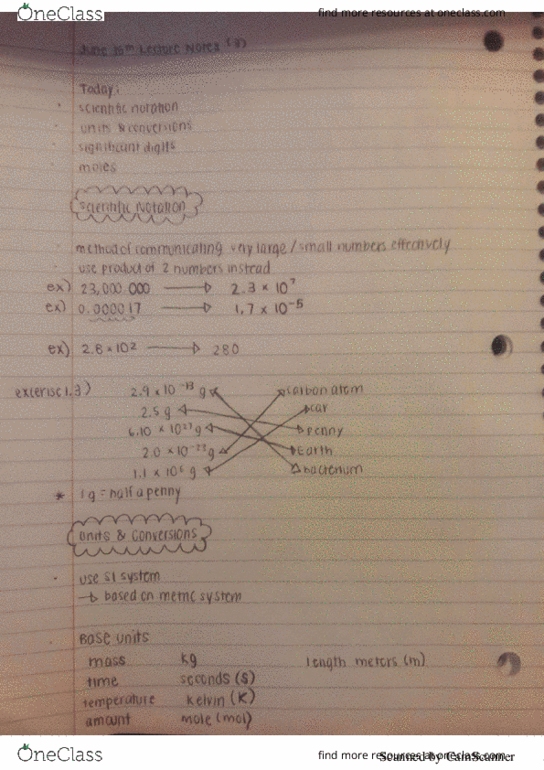 OneClass
find more resources at oneclass.com
June 15th Lecture Notes (3)
Today:
scientific notation
units & conversions
significant digits
moles
Scientific Notation
method of communicating very large / small numbers effectively
use product of 2 numbers instead
ex) 23,000,000 → 2.3 x 10⁷
ex) 0.000017 → 1.7 x 10⁻⁵
ex) 2.8 x 10² → 280
exercise 1.3) 2.9 x 10 g carbon atom
2.5 g car
6.10 x 10²⁷ g penny
2.0 x 10⁻²³ g Earth
1.1 x 10⁶ g bacterium
* 1g = half a penny
Units & Conversions
use SI system
→ based on metric system
Base units
mass kg length meters (m)
time seconds (s)
temperature kelvin (K)
amount mole (mol)
OneClass
find more resources at oneclass.com
Scanned by CamScanner